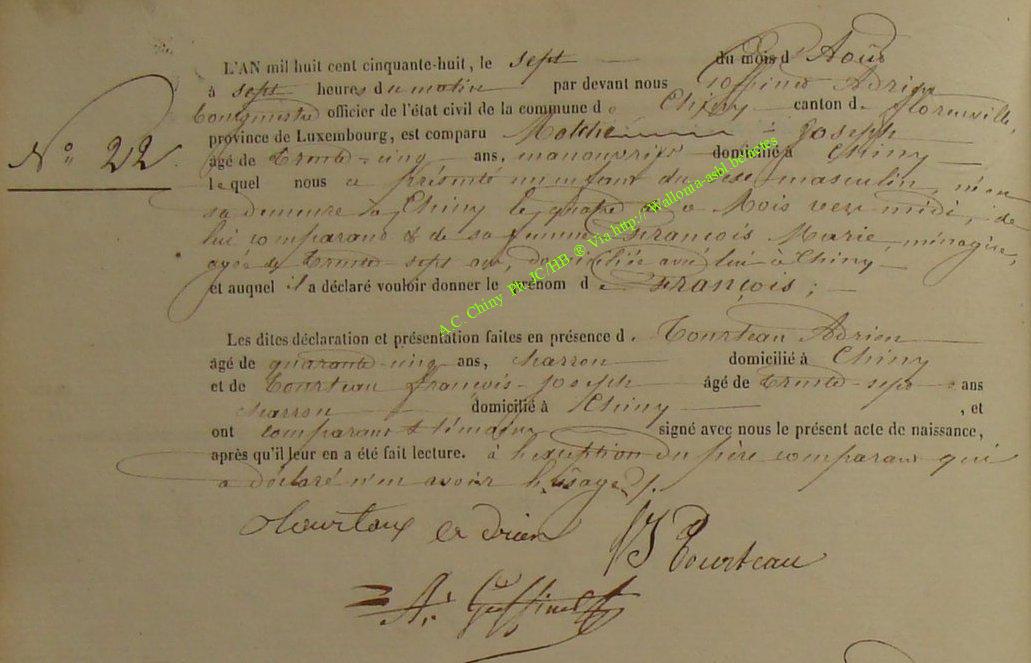 L'AN mil huit cent cinquante-huit, le sept du mois d' Août
à sept heures du matin par devant nous Goffinet Adrien
Bourgmestre officier de l'état civil de la commune de Chiny canton de Florenville,
province de Luxembourg, est comparu Joseph
Nº 22.
âgé de trente-cinq ans, manouvrier domicilié à Chiny
lequel nous a présenté un enfant du sexe masculin, né en
sa demeure à Chiny le quatre de ce Mois vers midi, de
lui comparant & de sa femme François Marie, ménagère,
agée de trente-sept ans, domiciliée avec lui à Chiny
et auquel il a déclaré vouloir donner le prénom de François; -
Les dites déclaration et présentation faites en présence d. Tourteau Adrien
âgé de quarante-cinq ans, charron domicilié à Chiny
et de Tourteau françois-joseph âgé de trente-sept ans
charron domicilié à Chiny , et
ont comparant & témoins signé avec nous le présent acte de naissance,
après qu'il leur en a été fait lecture. à l'exception du père comparant qui
a déclaré n'en avoir l'usage./.
adrien
FJ Tourteau
A. Goffinet
A.C. Chiny Ph JC/HB ® Via http://Wallonia-asbl.be/actes